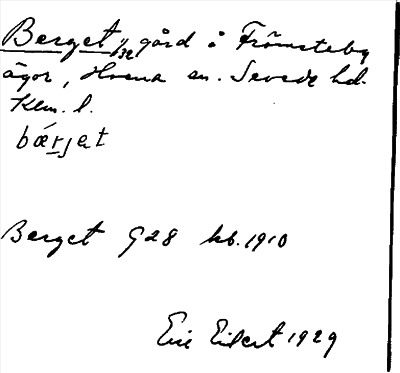 Berget, 1/32 gård å Frömsteby
ägor, Hvena sn. Sevede hd.
Klm. l.
bǽrjat
Berget G28 kb. 1910
Eric Eilert 1929